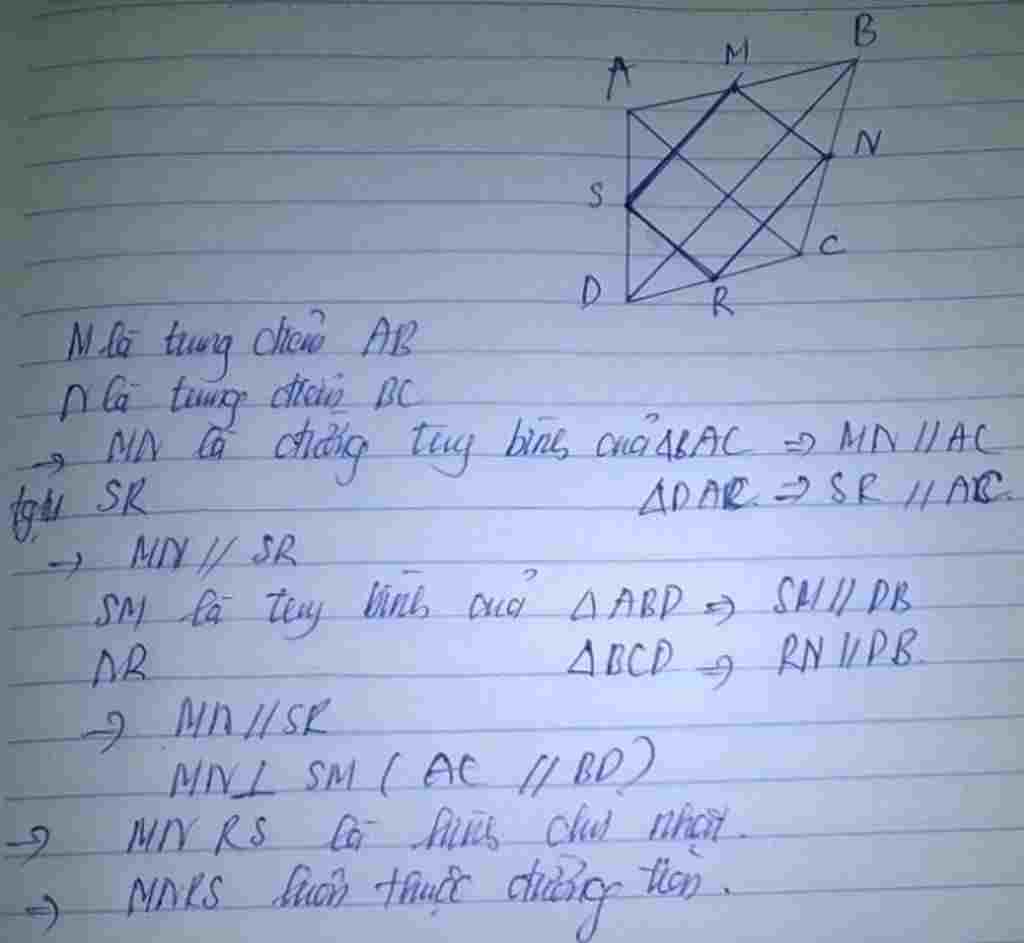 A M B
S N
D R C
M là trung điểm AB
N là trung điểm BC
→ MN là đường tung bình của ΔBAC ⇒ MN // AC
tgtự SR ΔDAC ⇒ SR // AC.
→ MN // SR
SM là tung bình của ΔABD ⇒ SM // DB
NR ΔBCD ⇒ RN // DB.
⇒ MN // SR
MN ⊥ SM ( AC // BD )
⇒ MNRS là hình chữ nhật.
⇒ MNRS luôn thuộc đường tròn.